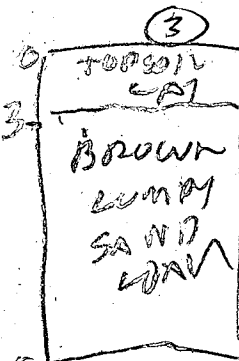 3
0
TOPSOIL
3
BROWN
LUMPY
SAND
LOAM